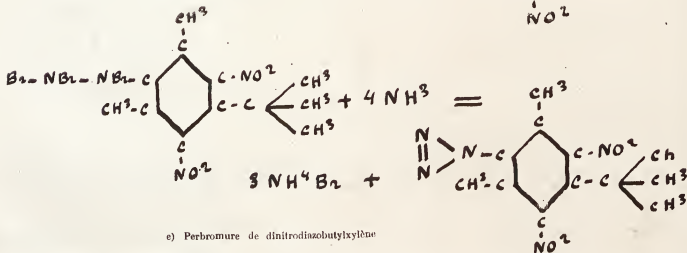 NO²
CH³
C
Br - NBr - NBr - C
C · NO²
CH³ - C
C - C
CH³
CH³
CH³
C
NO²
+ 4 NH³ =
3 NH⁴Br +
N
N
N - C
CH³
C
C - NO²
CH³ - C
C - C
Ch
CH³
CH³
C
NO²
e) Perbromure de dinitrodiazobutylxylène